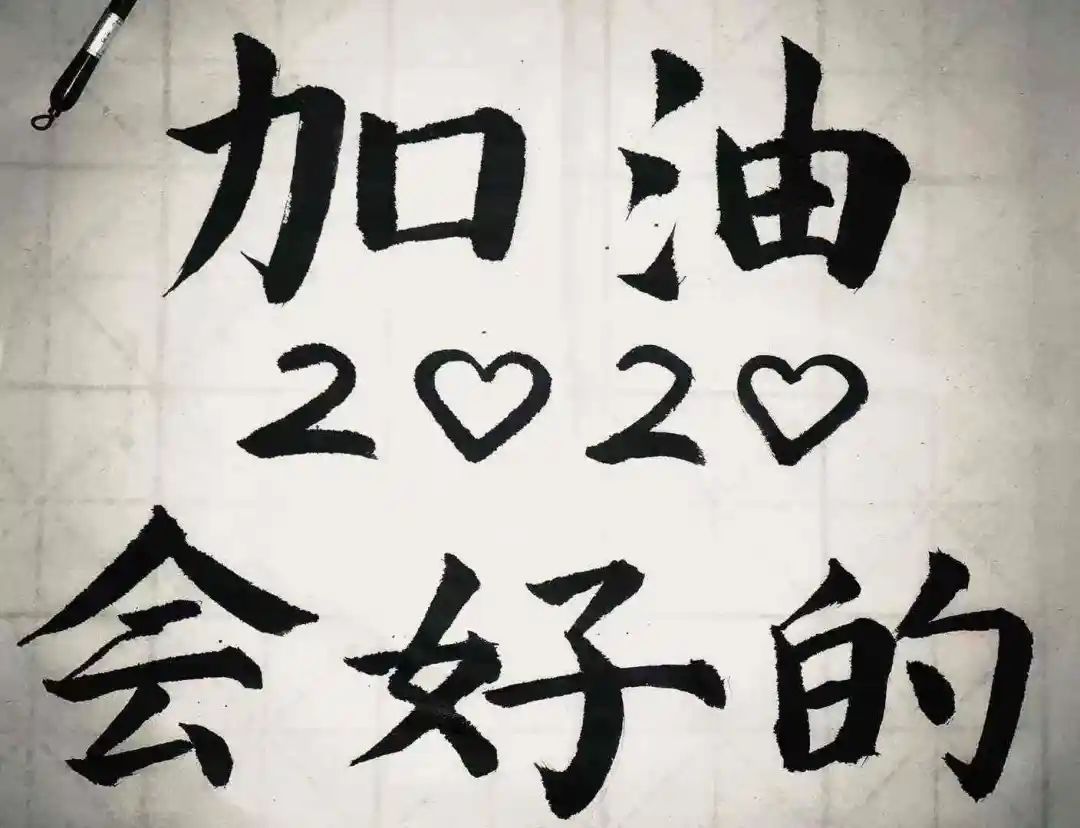 加油
2♡2♡
会好的